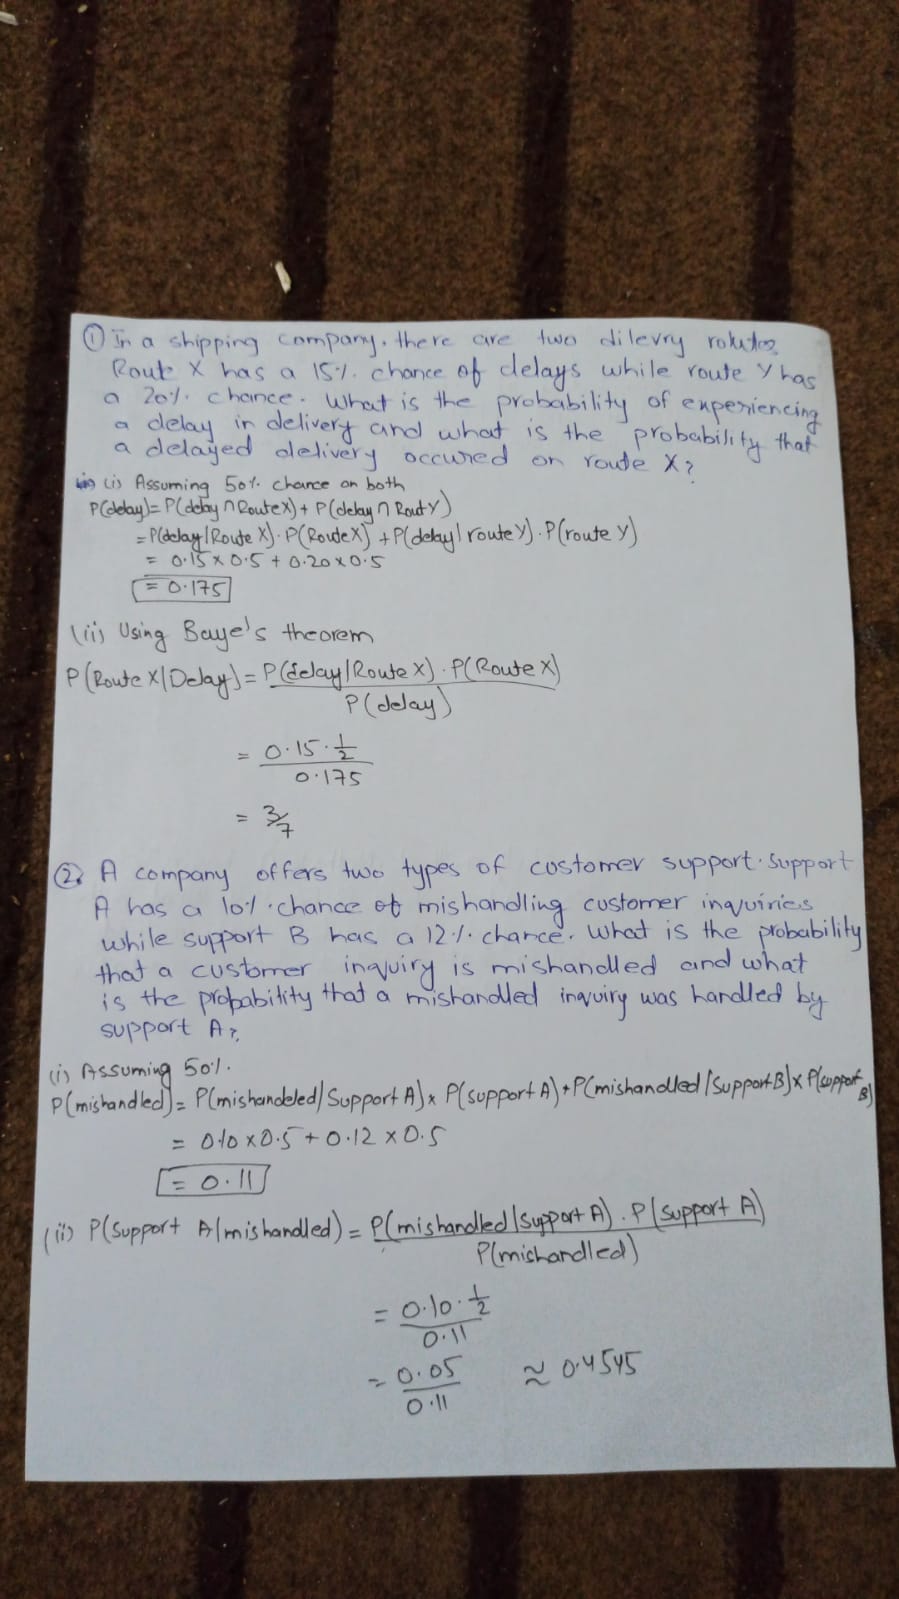 ① In a shipping company. there are two dilevry routes
Route X has a 15%. chance of delays while route Y has
a 20%. chance. What is the probability of experiencing
a delay in delivery and what is the probability that
a delayed delivery occured on route X?
(i) Assuming 50%. chance on both
P(delay)= P(delay ∩ Route X) + P(delay ∩ Rout Y)
= P(delay/Route X). P(Route X) + P(delay/route Y). P(route Y)
= 0.15 x 0.5 + 0.20 x 0.5
= 0.175
(ii) Using Baye's theorem
P(Route X/Delay) = P(delay/Route X). P(Route X)
P(delay)
= 0.15 . 1/2
0.175
= 3/7
② A company offers two types of customer support. Support
A has a 10%. chance of mishandling customer inquiries
while support B has a 12%. chance. What is the probability
that a customer inquiry is mishandled and what
is the probability that a mishandled inquiry was handled by
support A?
(i) Assuming 50%.
P(mishandled) = P(mishandeled/Support A) x P(support A) + P(mishandled/Support B) x P(support B)
= 0.10 x 0.5 + 0.12 x 0.5
= 0.11
(ii) P(Support A/mishandled) = P(mishandled/Support A). P(support A)
P(mishandled)
= 0.10 . 1/2
0.11
= 0.05 ≈ 0.4545
0.11